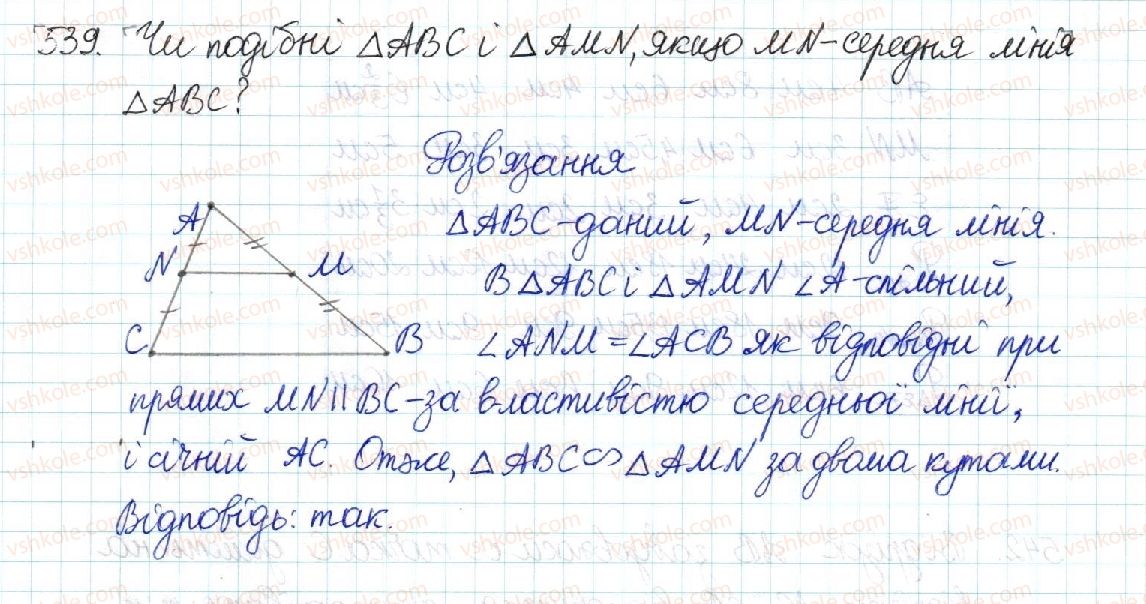 539. Чи подібні △ABC і △AMN, якщо MN-середня лінія
△ABC?
Розв'язання
△ABC-даний, MN-середня лінія.
В △ABC і △AMN ∠A-спільний,
∠ANM=∠ACB як відповідні при
прямих MN||BC-за властивістю середньої лінії,
і січній AC. Отже, △ABC∽△AMN за двома кутами.
Відповідь: так.
A
N
M
C
B
vshkole.com